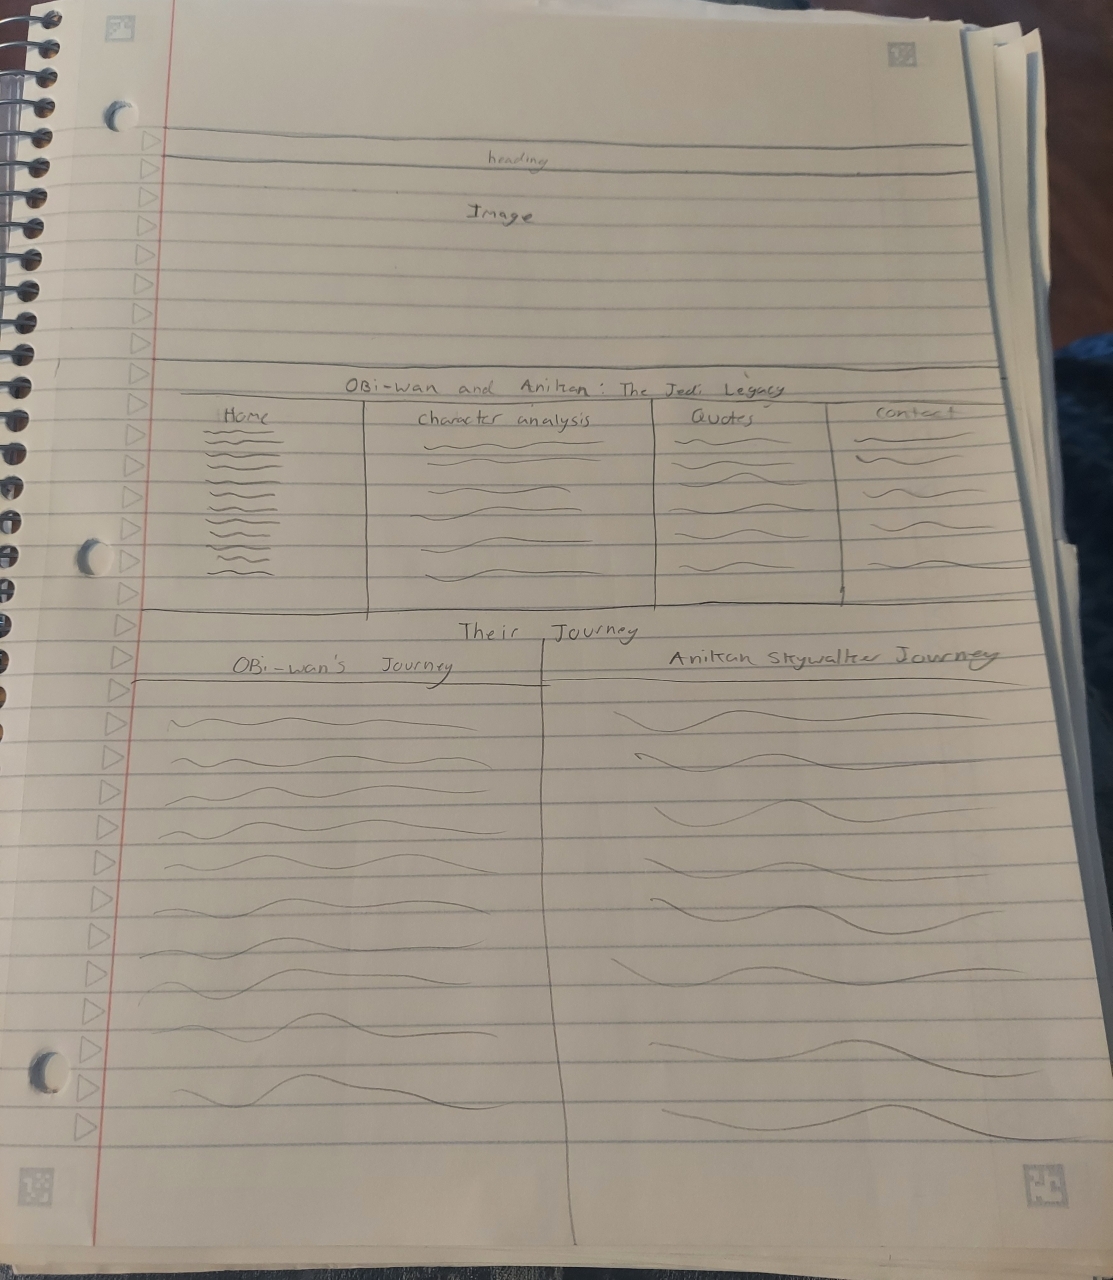 heading
Image
OBi-wan and Anikan: The Jedi Legacy
Home character analysis Quotes contact
Their Journey
OBi-wan's Journey Anikan Skywalker Journey